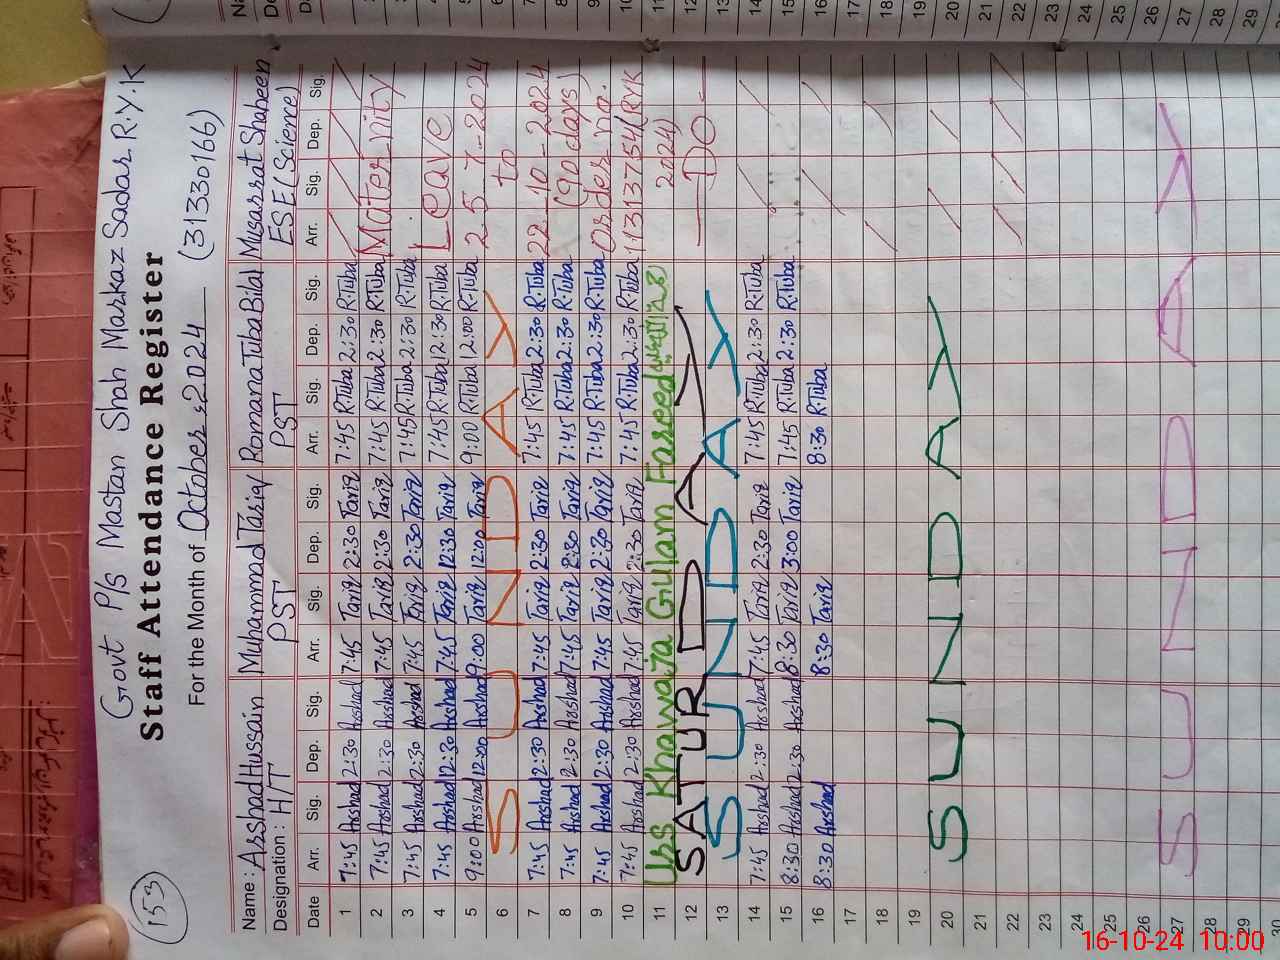 (153)
Govt P/s Mastan Shah Markaz Sadar R.Y.K
Staff Attendance Register
For the Month of October, 2024 (31330166)
Name: Arshad Hussain Muhammad Tariq Romana Tuba Bilal Musarrat Shaheen
Designation: H/T PST PST ESE (Science)
Date Arr. Sig. Dep. Sig. Arr. Sig. Dep. Sig. Arr. Sig. Dep. Sig. Arr. Sig. Dep. Sig.
1 7:45 Arshad 2:30 Arshad 7:45 Tariq 2:30 Tariq 7:45 R.Tuba 2:30 R.Tuba
2 7:45 Arshad 2:30 Arshad 7:45 Tariq 2:30 Tariq 7:45 R.Tuba 2:30 R.Tuba Maternity
3 7:45 Arshad 2:30 Arshad 7:45 Tariq 2:30 Tariq 7:45 R.Tuba 2:30 R.Tuba
4 7:45 Arshad 12:30 Arshad 7:45 Tariq 12:30 Tariq 7:45 R.Tuba 12:30 R.Tuba Leave
5 9:00 Arshad 12:00 Arshad 9:00 Tariq 12:00 Tariq 9:00 R.Tuba 12:00 R.Tuba 25-7-2024
6 SUNDAY to
7 7:45 Arshad 2:30 Arshad 7:45 Tariq 2:30 Tariq 7:45 R.Tuba 2:30 R.Tuba 22-10-2024
8 7:45 Arshad 2:30 Arshad 7:45 Tariq 2:30 Tariq 7:45 R.Tuba 2:30 R.Tuba (90 days)
9 7:45 Arshad 2:30 Arshad 7:45 Tariq 2:30 Tariq 7:45 R.Tuba 2:30 R.Tuba Order no.
10 7:45 Arshad 2:30 Arshad 7:45 Tariq 2:30 Tariq 7:45 R.Tuba 2:30 R.Tuba 11313754(RYK
11 Urs Khawaja Gulam Fareed 2024)
12 SATURDAY —DO—
13 SUNDAY
14 7:45 Arshad 2:30 Arshad 7:45 Tariq 2:30 Tariq 7:45 R.Tuba 2:30 R.Tuba
15 8:30 Arshad 2:30 Arshad 8:30 Tariq 3:00 Tariq 7:45 R.Tuba 2:30 R.Tuba
16 8:30 Arshad 8:30 Tariq 8:30 R.Tuba
17
18
19
20 SUNDAY
21
22
23
24
25
26
27 SUNDAY
28
29
30
16-10-24 10:00